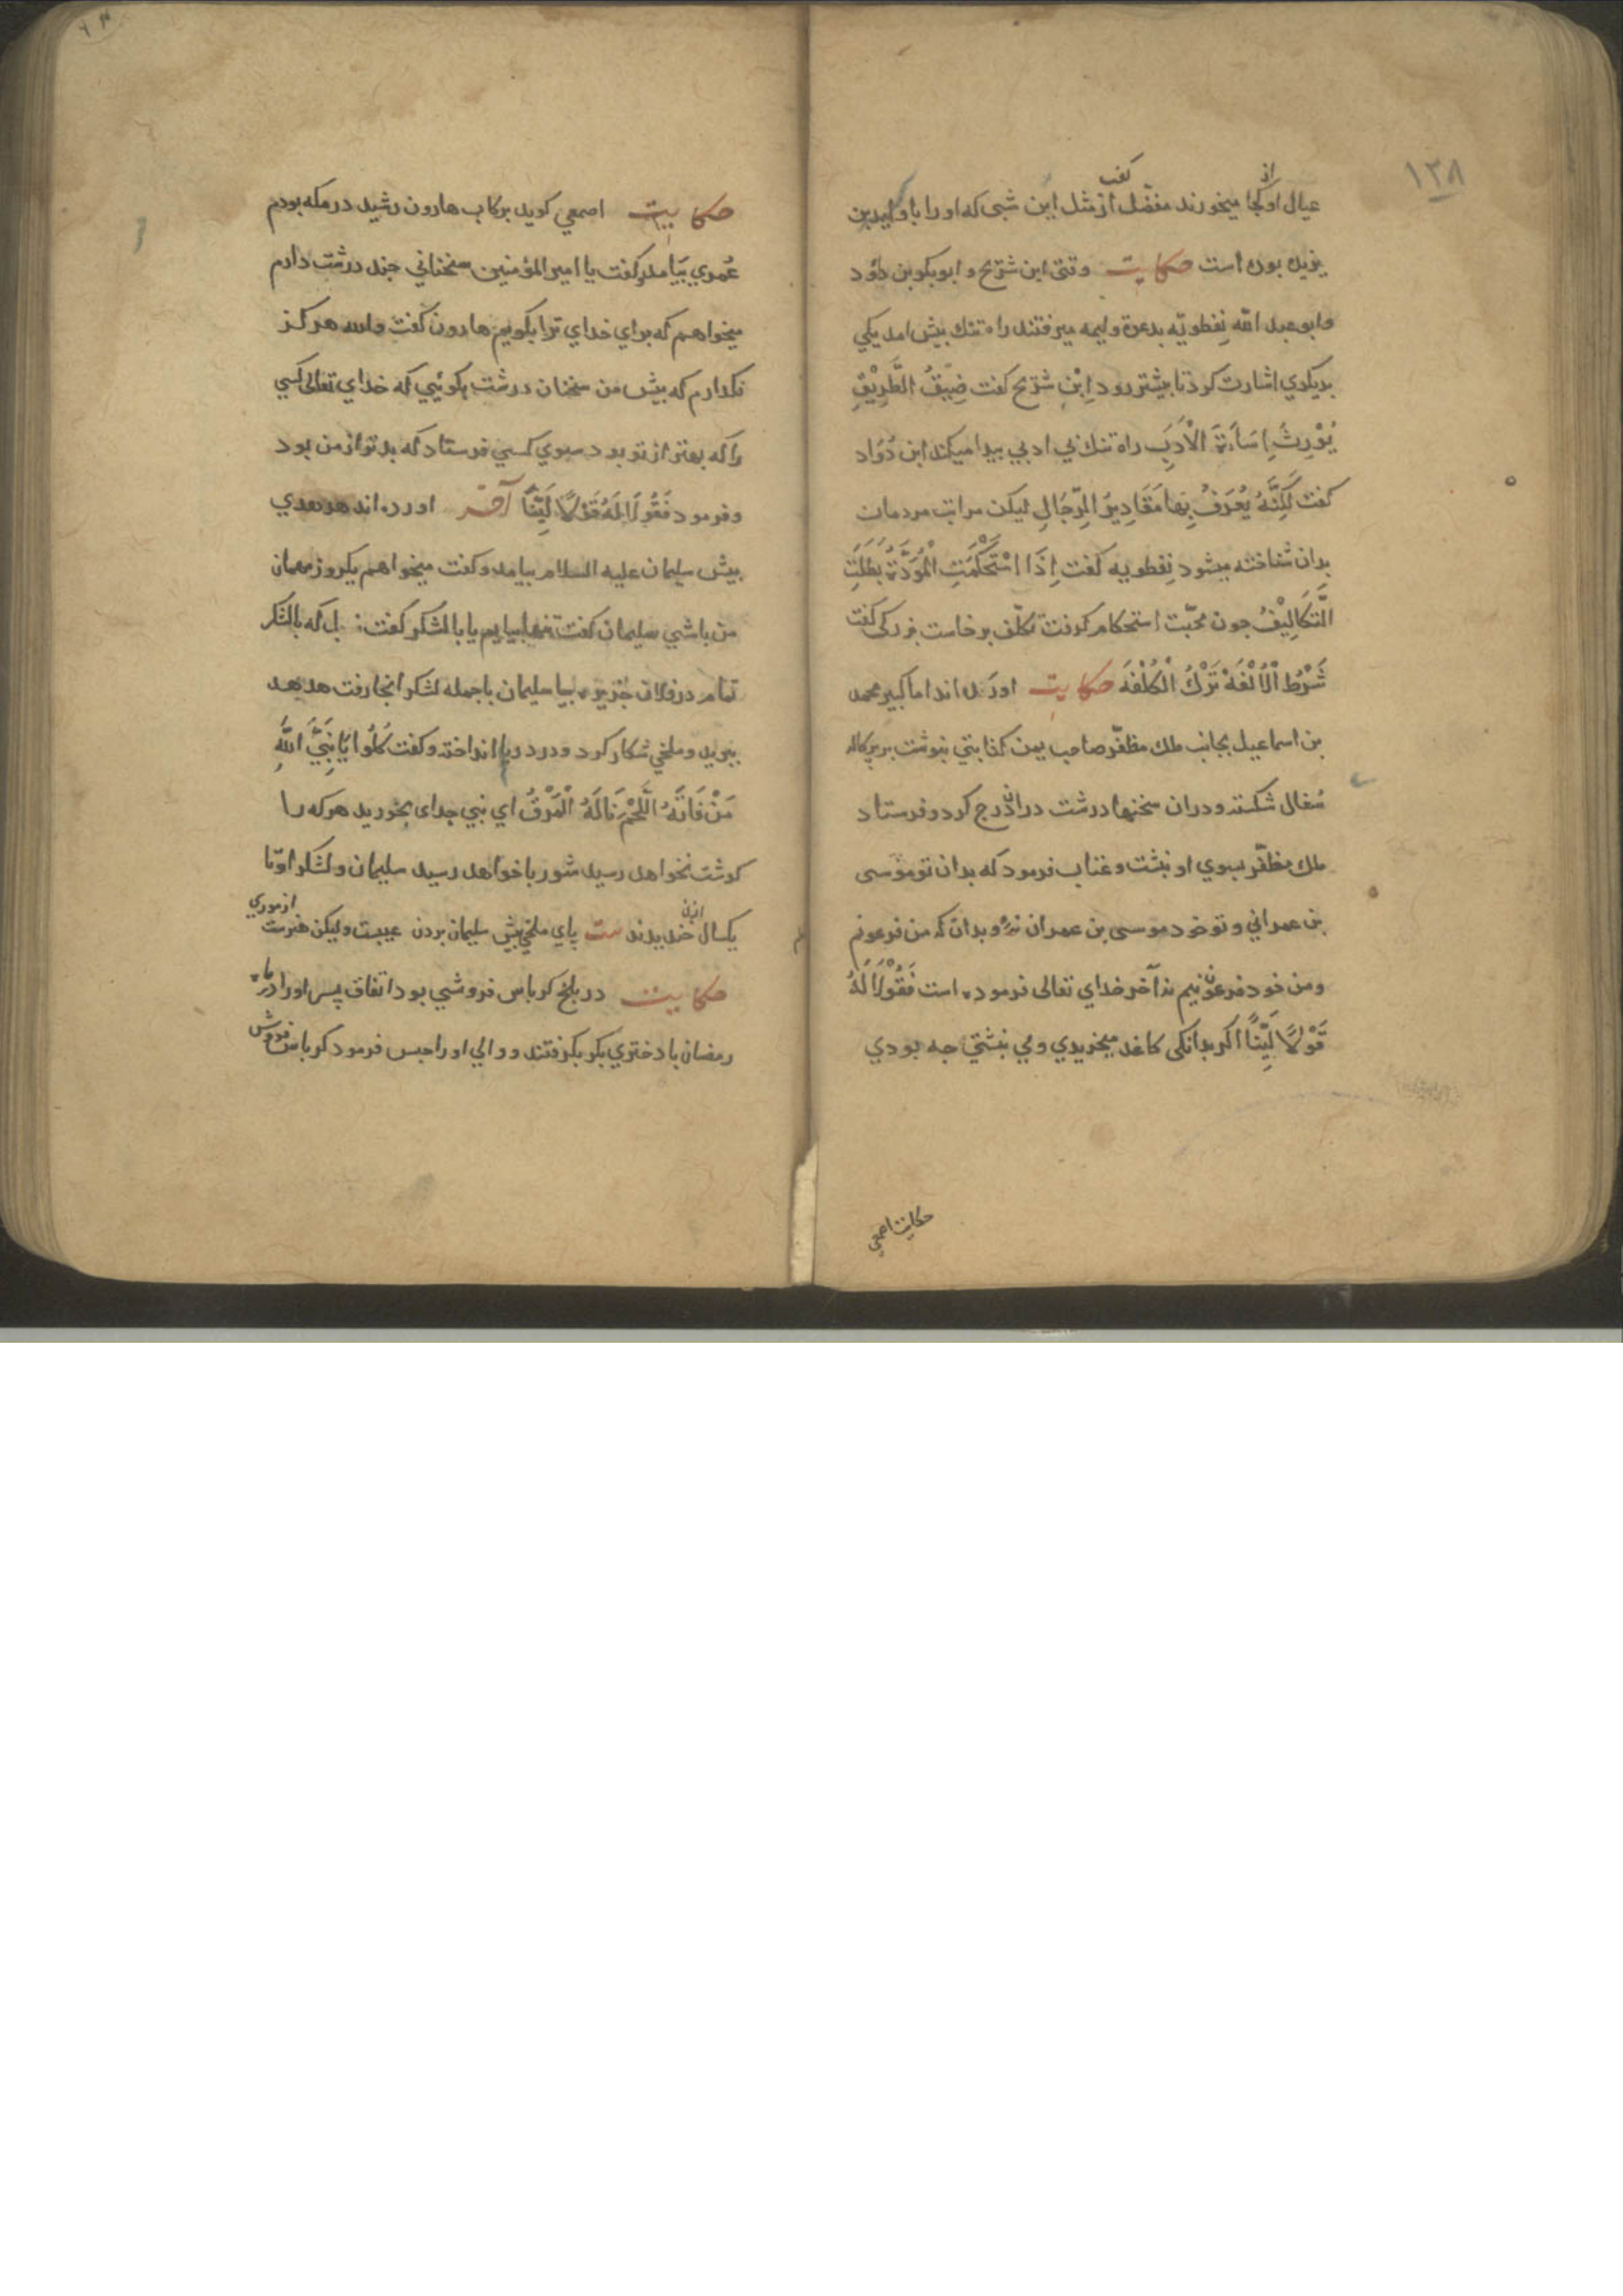 ١٣٨
عیال او از کجا میخورند مفضّل کفت از مثل این شبی که او را با ولیدبن
یزید بوده است حکایت وقتی ابن شریح و ابوبکر بن داؤد
وابو عبد الله نِفطویَه بدعوة ولیمه میرفتند راه تنك بیش امد یکي
بدیکري اشارت کرد تا بیشتر رود اِبْنِ شریح کفت ضِیقُ الطَّرِیْقِ
یُوْرِثُ اِسَاءَةَ الْاَدَبِ راه تنك بي ادبي بیدا میکند ابن دَوُاد
کفت لٰکِنَّهُ یُعْرَفُ بِهَا مَقَادِیْرُ الرِّجَالِ لیکن مراتب مردمان
بدان شناخته میشود نِفطویه کفت اِذَا اسْتَحْکَمَتِ الْمَوَدَّةُ بَطَلَتِ
التَّکَالِیْفُ جون محبّت استحکام کرفت تکلّف برخاست بزرکی کفت
شَرْطُ الْاُلْفَةِ تَرْكُ الْکُلْفَةِ حکایت اورده اند اما کبیر محمد
بن اسماعیل بجانب ملك مظفّر صاحب یمن کتابتي بنوشت بر برکاله
سُفال شکسته و دران سخنها درشت دران درج کرد و فرستاد
ملك مظفّر بسوي او بنشت و عتاب فرمود که بدان تو موسی
بن عمراني و تو خود موسی بن عمران نهٔ و بدان که من فرعونم
ومن خود فرعون نیم نه آخر خداي تعالی فرموده است فَقُوْلَا لَهُ
قَوْلًا لَیِّنًا اکر بدانکی کاغد میخریدي و مي بنشتي جه بودي
حکایت اصمعي
حکایت اصمعي کوید برکاب هارون رشید در مکه بودم
عُمري بیامد و کفت یا امیر المؤمنین سخناني جند درشت دارم
میخواهم که براي خداي ترا بکویم هارون کفت والله هرکز
نکذارم که بیش من سخنان درشت بکوئي که خداي تعالی کسي
را که بهتر از تو بود بسوي کسي فرستاد که بدتر از من بود
و فرمود فَقُولَا لَهُ قَوْلًا لَیِّنًا آخر اورده اند هدهدي
بیش سلیمان علیه السلام بیامد و کفت میخواهم یکروز مهمان
من باشي سلیمان کفت تنها بیایم یا با لشکر کفت نه بل که با لشکر
تمام در فلان جزیره بیا سلیمان با جمله لشکر انجا رفت هدهد
ببرید و ملخي شکار کرد و در دریا انداخت و کفت کُلُوا یَا نَبِيَّ اللّٰهِ
مَنْ فَاتَهُ اللَّحْمُ نَالَهُ الْمَرَقُ اي نبي خداي بخورید هر که را
کوشت نخواهد رسید شوربا خواهد رسید سلیمان و لشکر او تا
یکسال ازان خندیدند بیت پاي ملخي بیش سلیمان بردن عیبست ولیکن هنرست از موري
حکایت در بلخ کرباس فروشي بود اتفاق پسر او را در ماه
رمضان با دختري بکر بکرفتند و والي او را حبس فرمود کرباس فروش